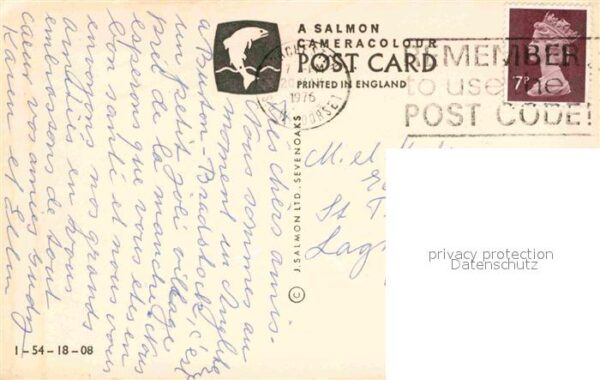 A SALMON
CAMERACOLOUR
POST CARD
PRINTED IN ENGLAND
7P
1976
DORSET
REMEMBER
to use the
POST CODE!
© J. SALMON LTD., SEVENOAKS
Très chers amis.
Nous sommes au
moment en Anglete
à Burton-Bradstock, c'est
un petit joli village
près de la manche. Nous
espérons que vous êtes en
bon santé et nous vous
envoyons nos grands
amitiés en vous
embrassons de tout
cœur vos amies
Karin et
M. et
St
privacy protection
Datenschutz
1-54-18-08